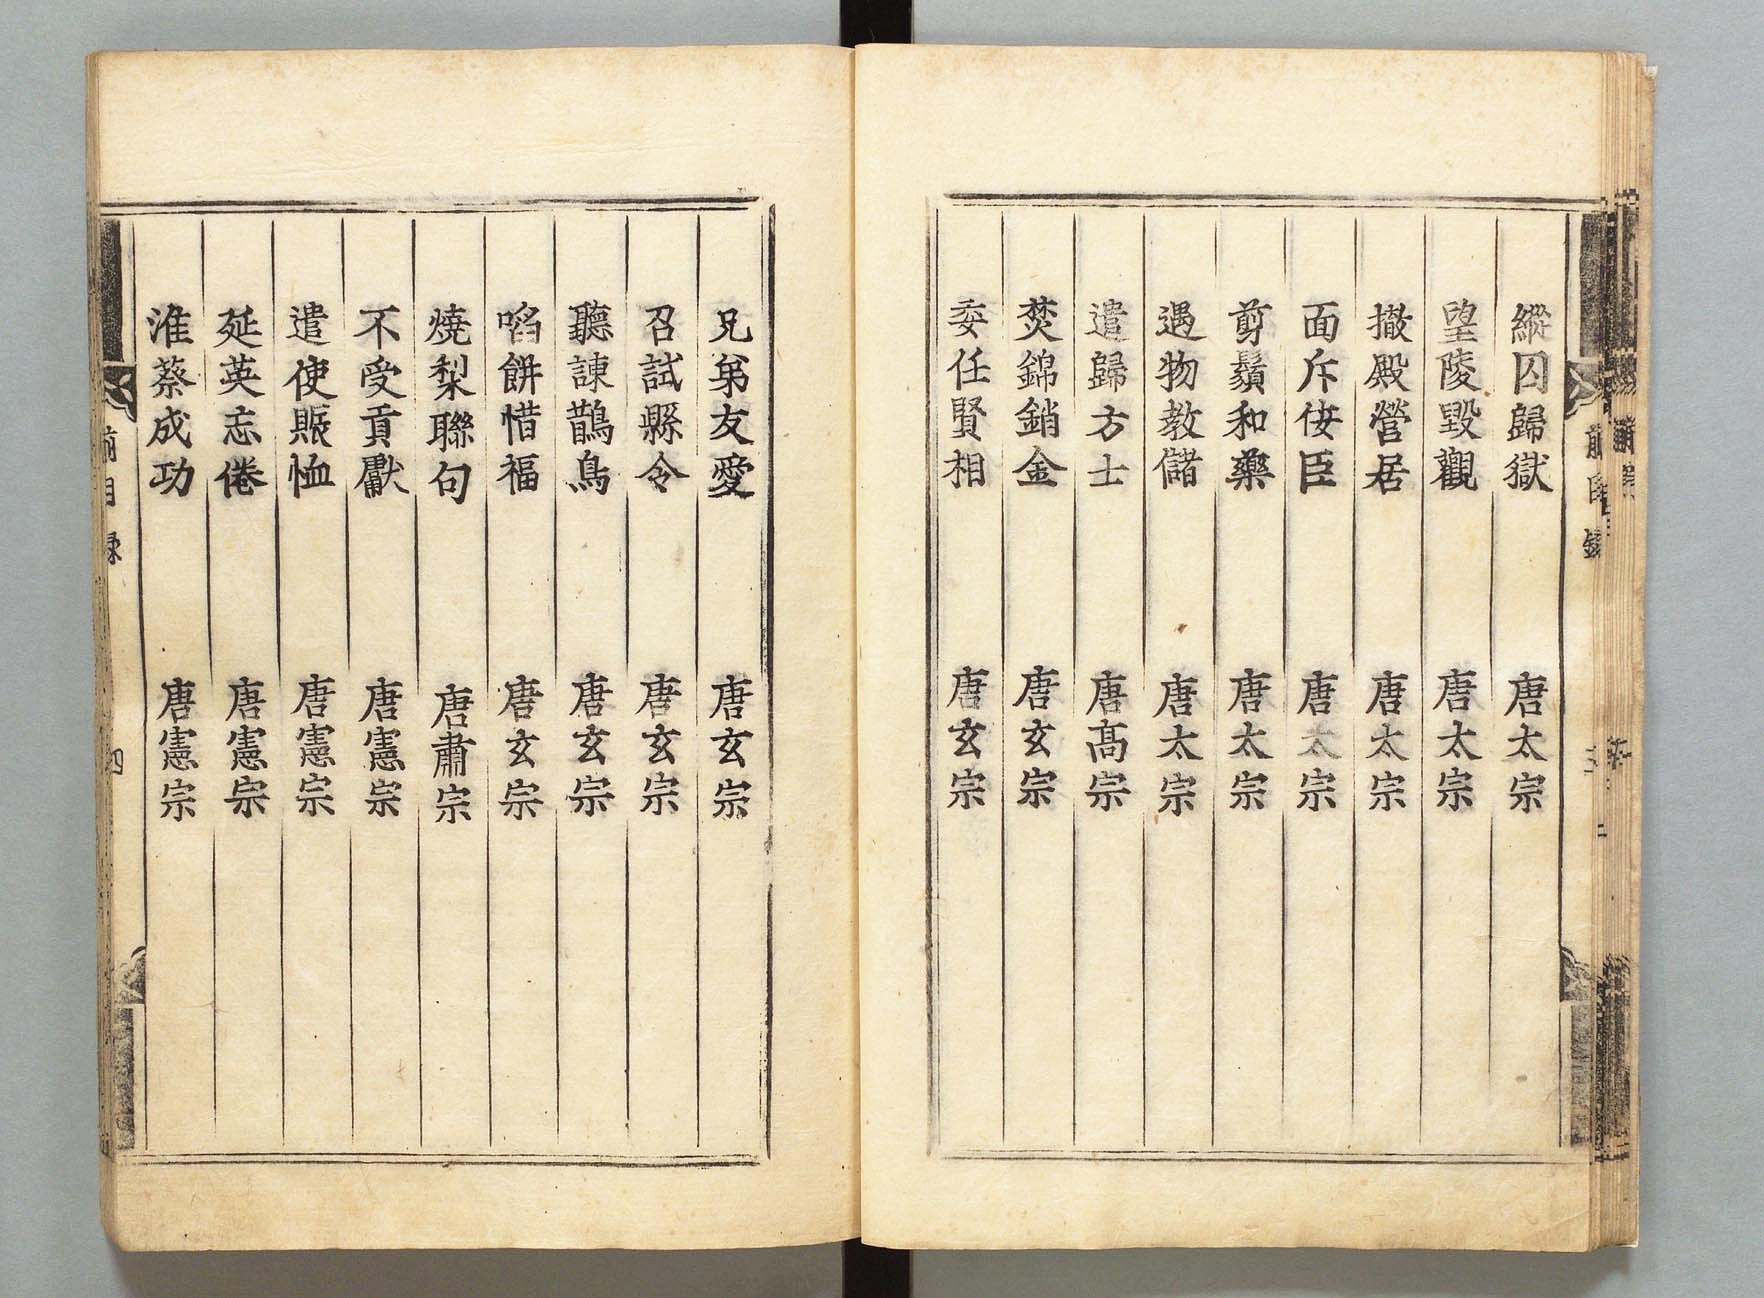 縱囚歸獄 唐太宗
望陵毀觀 唐太宗
撤殿營居 唐太宗
面斥佞臣 唐太宗
剪鬚和藥 唐太宗
遇物教儲 唐太宗
遣歸方士 唐高宗
焚錦銷金 唐玄宗
委任賢相 唐玄宗
兄弟友愛 唐玄宗
召試縣令 唐玄宗
聽諫鵲鳥 唐玄宗
啗餠惜福 唐玄宗
燒梨聯句 唐肅宗
不受貢獻 唐憲宗
遣使賑恤 唐憲宗
延英忘倦 唐憲宗
淮蔡成功 唐憲宗
前目録 四